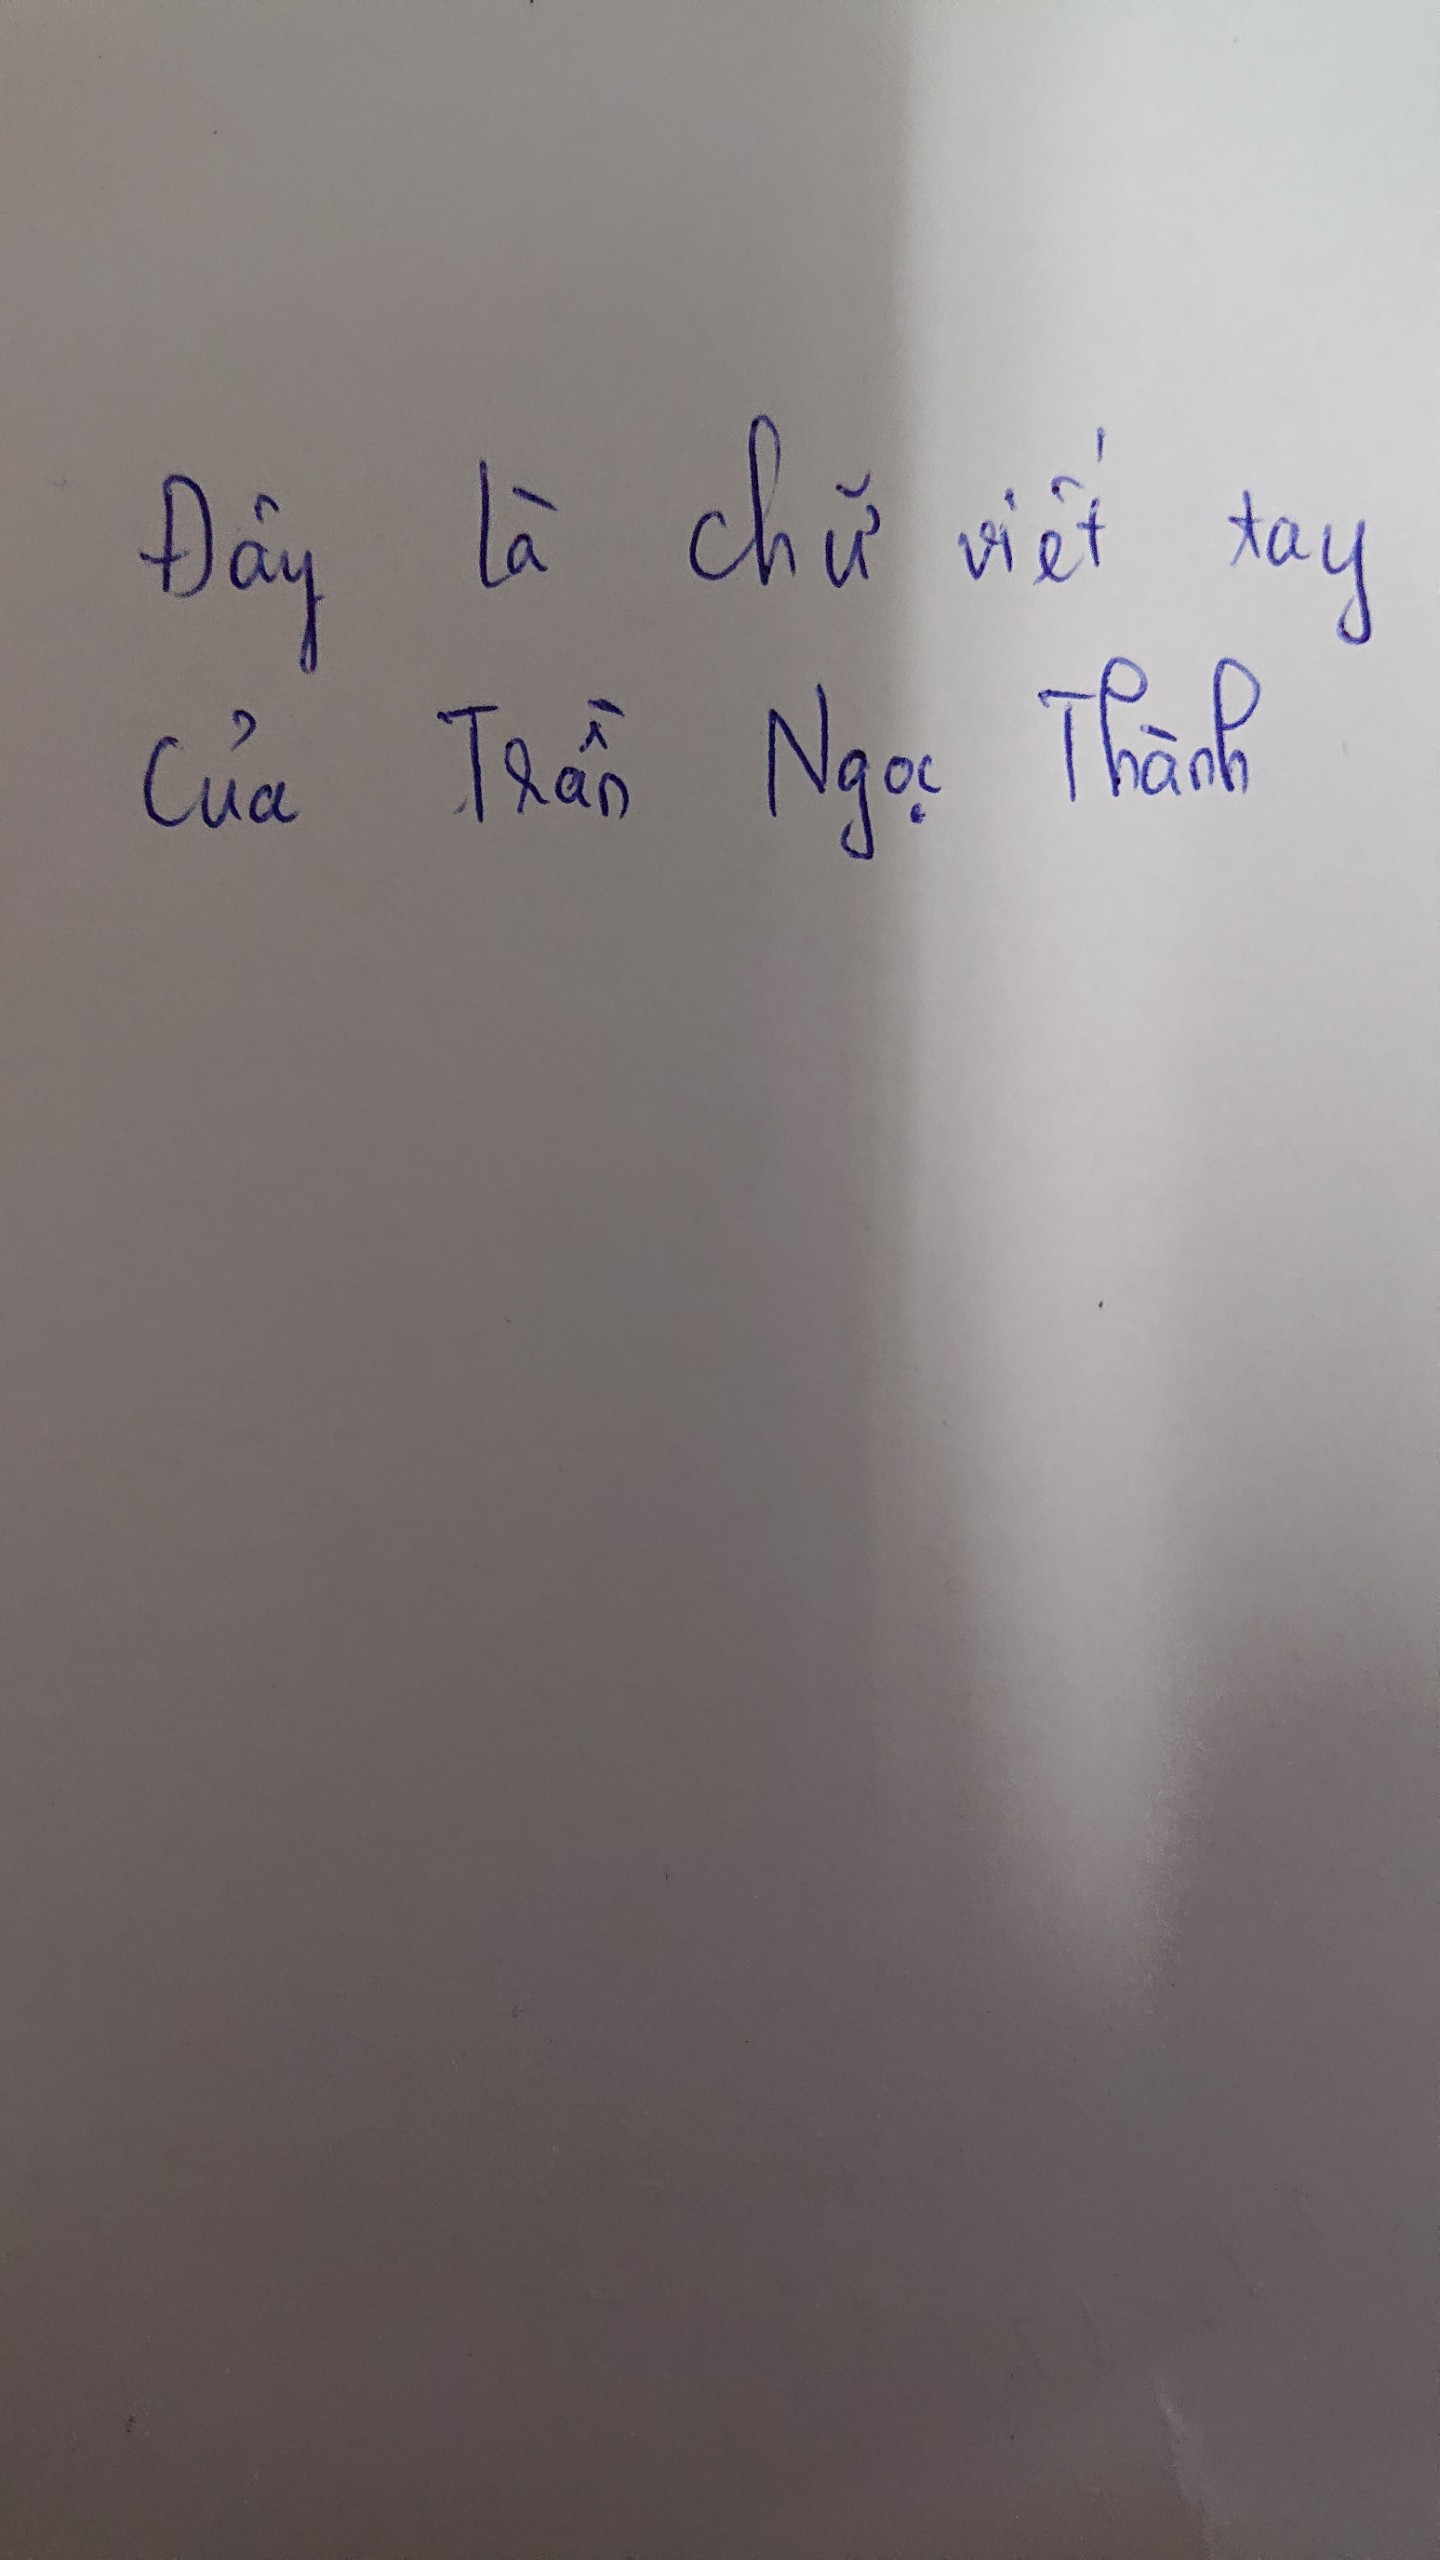 Đây là chữ viết tay
của Trần Ngọc Thành